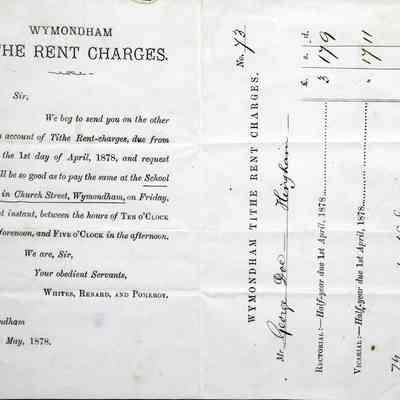 WYMONDHAM
THE RENT CHARGES.
Sir,
We beg to send you on the other
account of Tithe Rent-charges, due from
the 1st day of April, 1878, and request
ill be so good as to pay the same at the School
in Church Street, Wymondham, on Friday,
st instant, between the hours of TEN O'CLOCK
forenoon, and FIVE O'CLOCK in the afternoon.
We are, Sir,
Your obedient Servants,
WHITES, RENARD, AND POMEROY.
ndham
May, 1878.
No. 73.
WYMONDHAM TITHE RENT CHARGES.
Mr. George Doe Hingham
£. s. d.
RECTORIAL:—Half-year due 1st April, 1878 3 17 9
VICARIAL:—Half-year due 1st April, 1878 " 17 11